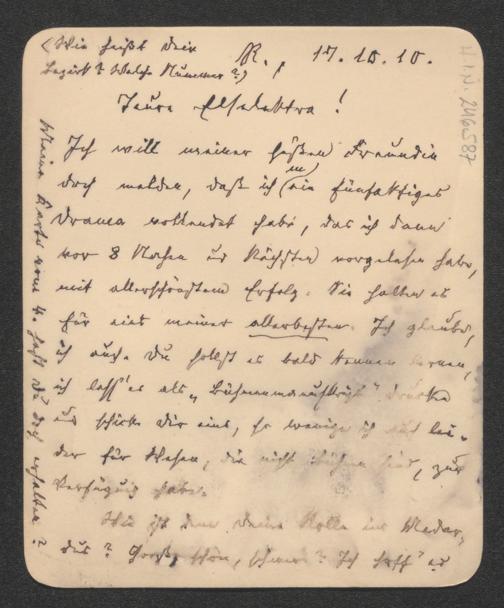 (Wie heißt Dein
Bezirk? Welche Nummer?)
R., 17.10.10.
H.I.N. 246587
Teure Elselektra!
Ich will meiner süßen Freundin
doch melden, daß ich (m)ein fünfaktiges
Drama vollendet habe, das ich dann
vor 8 Nahen und Nächsten vorgelesen habe,
mit allerschönstem Erfolg. Sie halten es
für eins meiner allerbesten. Ich glaube,
ich auch. Du sollst es bald kennen lernen,
ich lass' es als „Bühnenmanuskript" drucken
und schicke Dir eins, so wenige ich auch lei-
der für Wesen, die nicht Bühnen sind, zur
Verfügung habe.
Wie ist denn Deine Rolle im Medar-
dus? Groß, schön, schwer? Ich hoff' es
Meine Karte vom 4. hast Du doch erhalten?